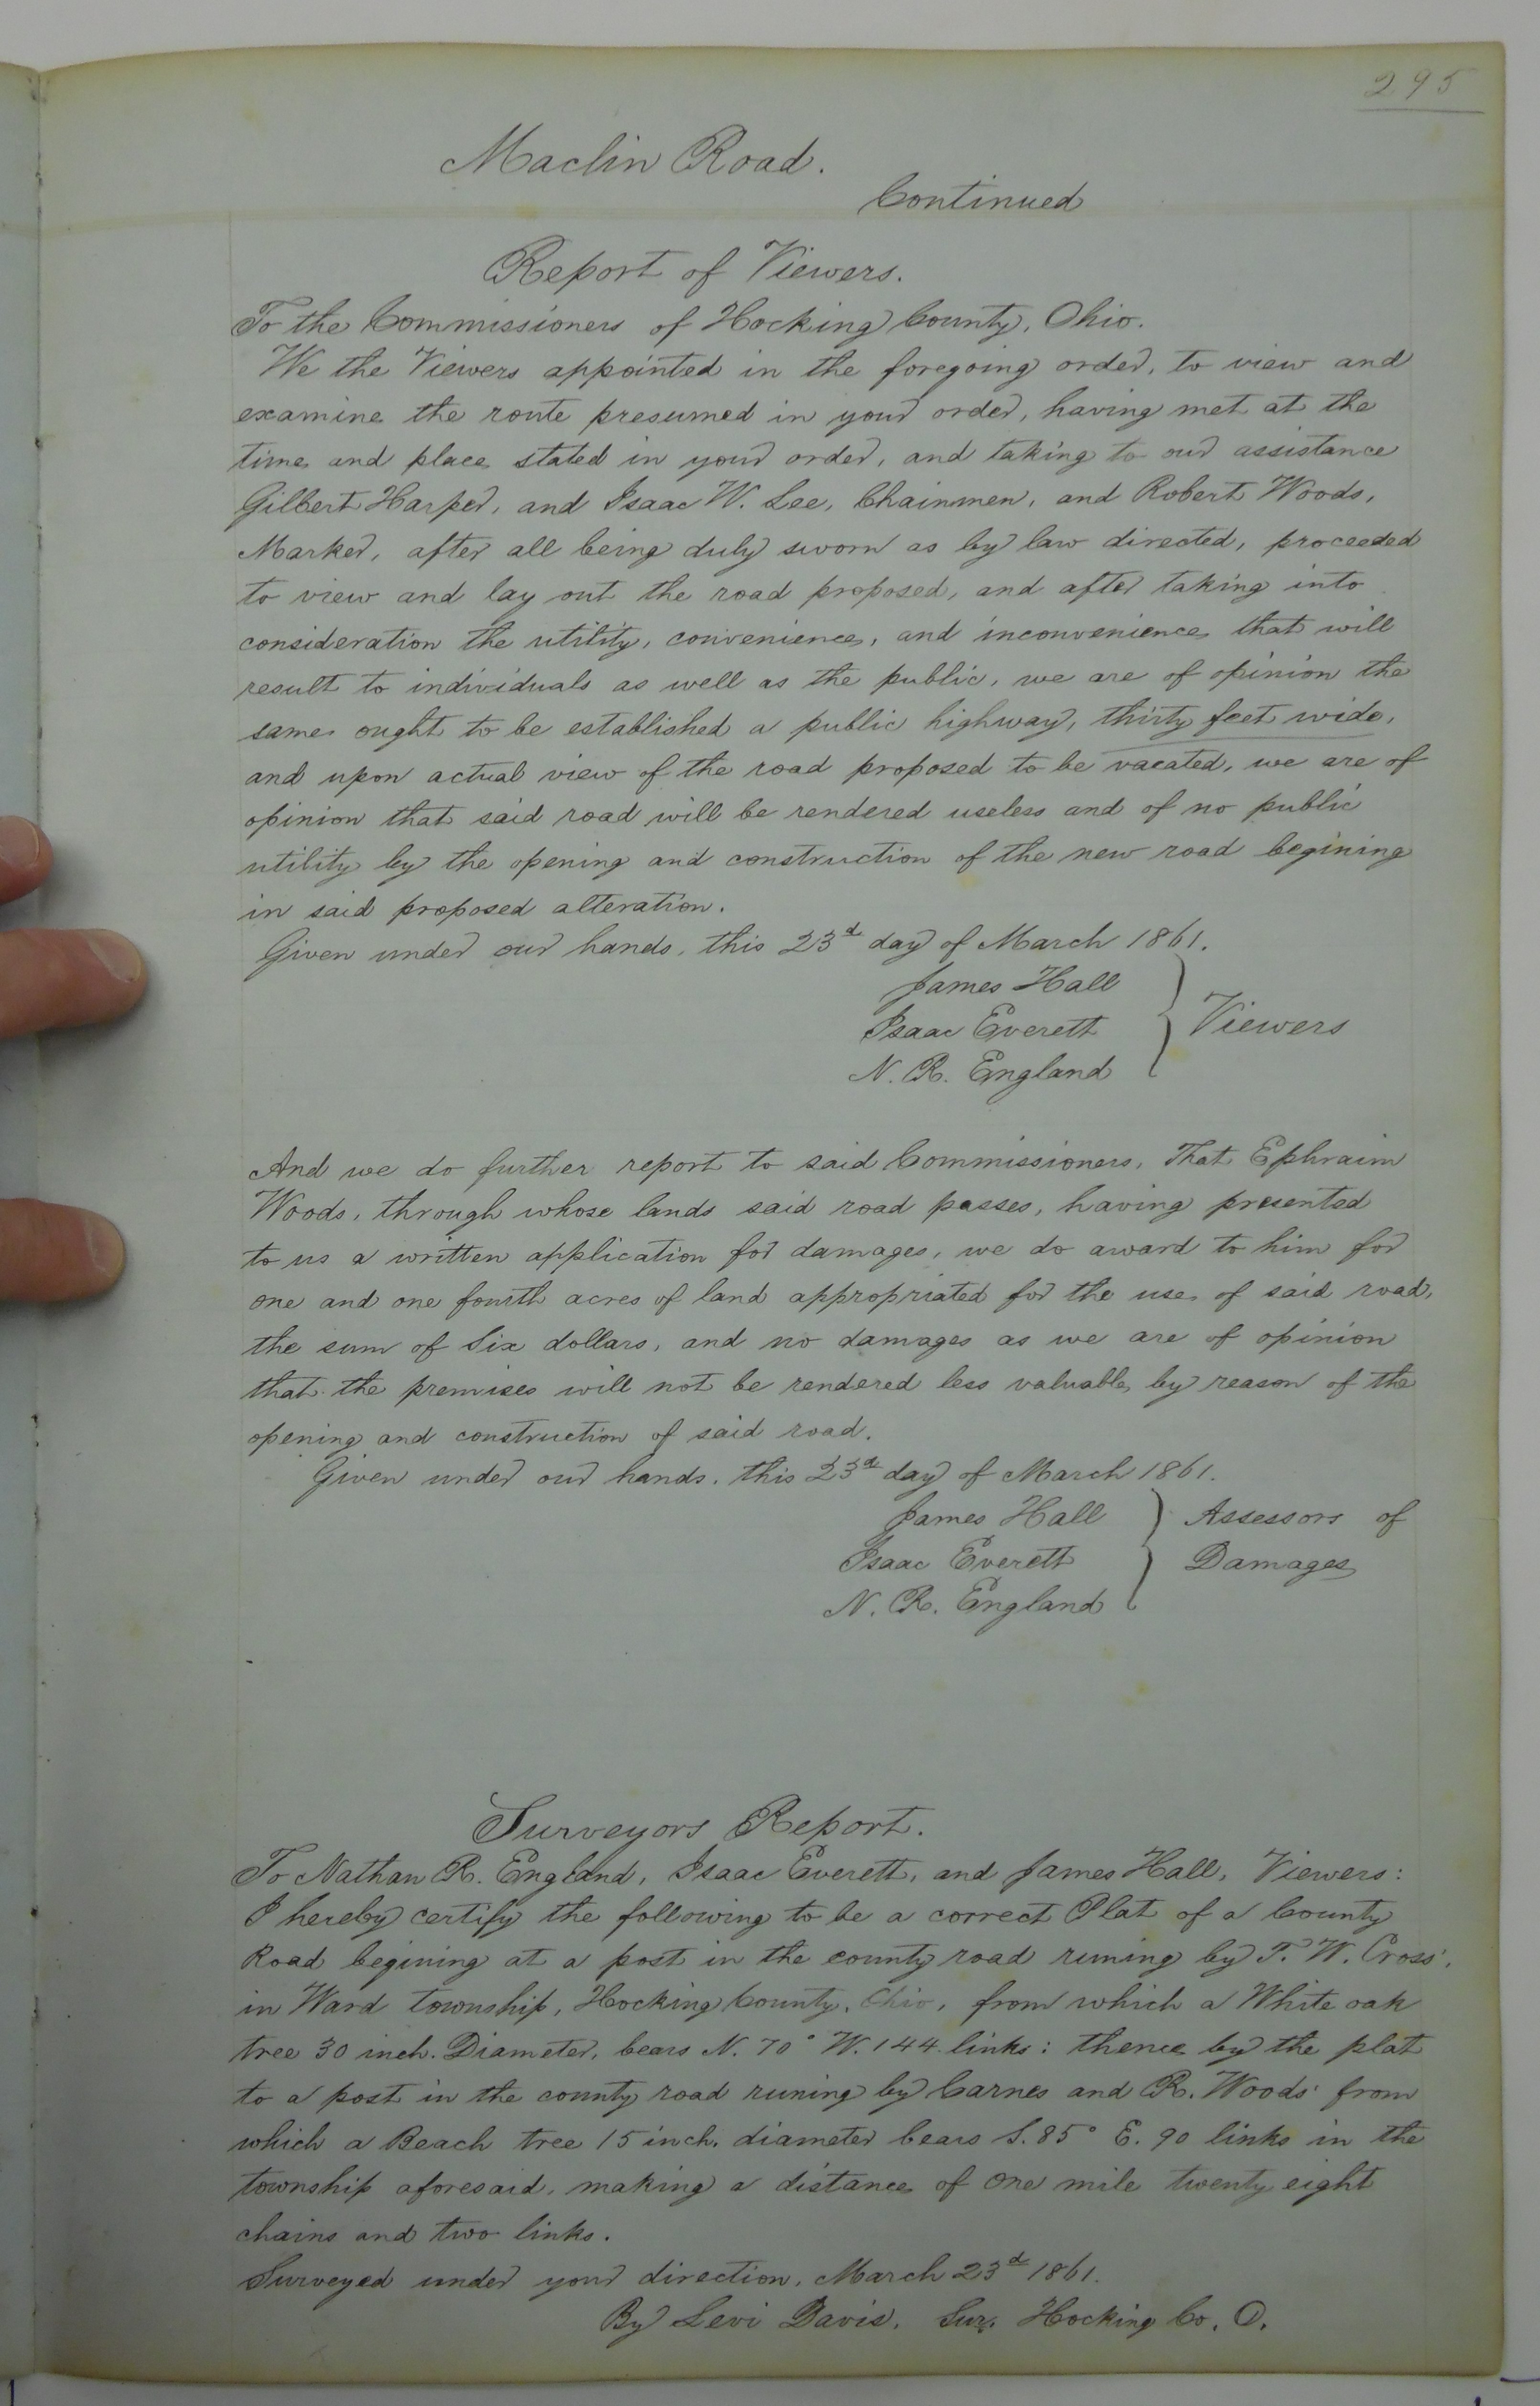 295
Maclin Road.
Continued
Report of Viewers.
To the Commissioners of Hocking County, Ohio.
We the Viewers appointed in the foregoing order, to view and
examine the route presumed in your order, having met at the
time and place stated in your order, and taking to our assistance
Gilbert Harper, and Isaac W. Lee, Chainmen, and Robert Woods,
Marker, after all being duly sworn as by law directed, proceeded
to view and lay out the road proposed, and after taking into
consideration the utility, convenience, and inconvenience that will
result to individuals as well as the public, we are of opinion the
same ought to be established a public highway, thirty feet wide,
and upon actual view of the road proposed to be vacated, we are of
opinion that said road will be rendered useless and of no public
utility by the opening and construction of the new road begining
in said proposed alteration.
Given under our hands, this 23d day of March 1861.
James Hall
Isaac Everett } Viewers
N. R. England
And we do further report to said Commissioners, That Ephraim
Woods, through whose lands said road passes, having presented
to us a written application for damages, we do award to him for
one and one fourth acres of land appropriated for the use of said road,
the sum of Six dollars, and no damages as we are of opinion
that the premises will not be rendered less valuable by reason of the
opening and construction of said road.
Given under our hands, this 23d day of March 1861.
James Hall } Assessors of
Isaac Everett } Damages
N. R. England
Surveyors Report.
To Nathan R. England, Isaac Everett, and James Hall, Viewers:
I hereby certify the following to be a correct Plat of a County
Road begining at a post in the county road runing by T. W. Cross',
in Ward township, Hocking County, Ohio, from which a White oak
tree 30 inch. Diameter, bears N. 70° W. 144 links: thence by the plat
to a post in the county road runing by Carnes and R. Woods' from
which a Beach tree 15 inch. diameter bears S. 85° E. 90 links in the
township aforesaid, making a distance of one mile twenty eight
chains and two links.
Surveyed under your direction, March 23d 1861.
By Levi Davis, Sur. Hocking Co. O.